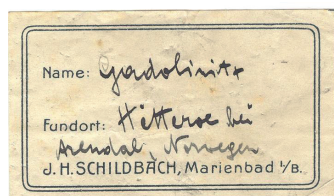 Name: Gadolinit
Fundort: Hitteroe bei
Arendal Norwegen
J. H. SCHILDBACH, Marienbad i/B.